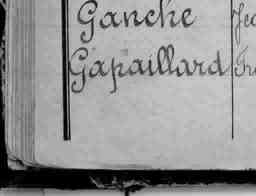 Ganche Je
Gapaillard Fr